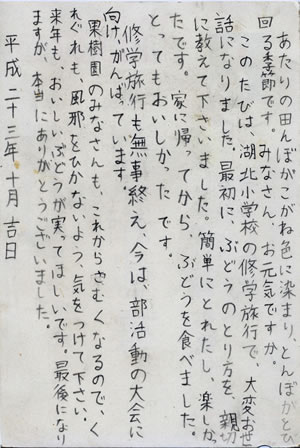 あたりの田んぼがこがね色に染まり、とんぼがとび
回る季節です。みなさん、お元気ですか。
このたびは、湖北小学校の修学旅行で、大変お世
話になりました。最初に、ぶどうのとり方を、親切
に教えて下さいました。簡単にとれたし、楽しか
たです。家に帰ってから、ぶどうを食べました。
とってもおいしかったです。
修学旅行も無事終え、今は、部活動の大会に
向けがんばっています。
果樹園のみなさんも、これからさむくなるので、く
れぐれも、風邪をひかないよう、気をつけて下さい。
来年も、おいしいぶどうが実ってほしいです。最後になり
ますが、本当にありがとうございました。
平成二十三年十月吉日